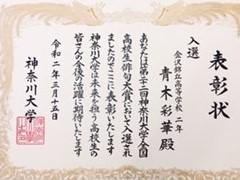 表彰状
入選
金沢錦丘高等学校 二年
青木彩華殿
あなたは第二十二回神奈川大学全国
高校生俳句大賞において入選され
ましたのでここに表彰いたします
神奈川大学は未来を担う高校生の
皆さんの今後の活躍に期待いたします
令和二年三月十五日
神奈川大学